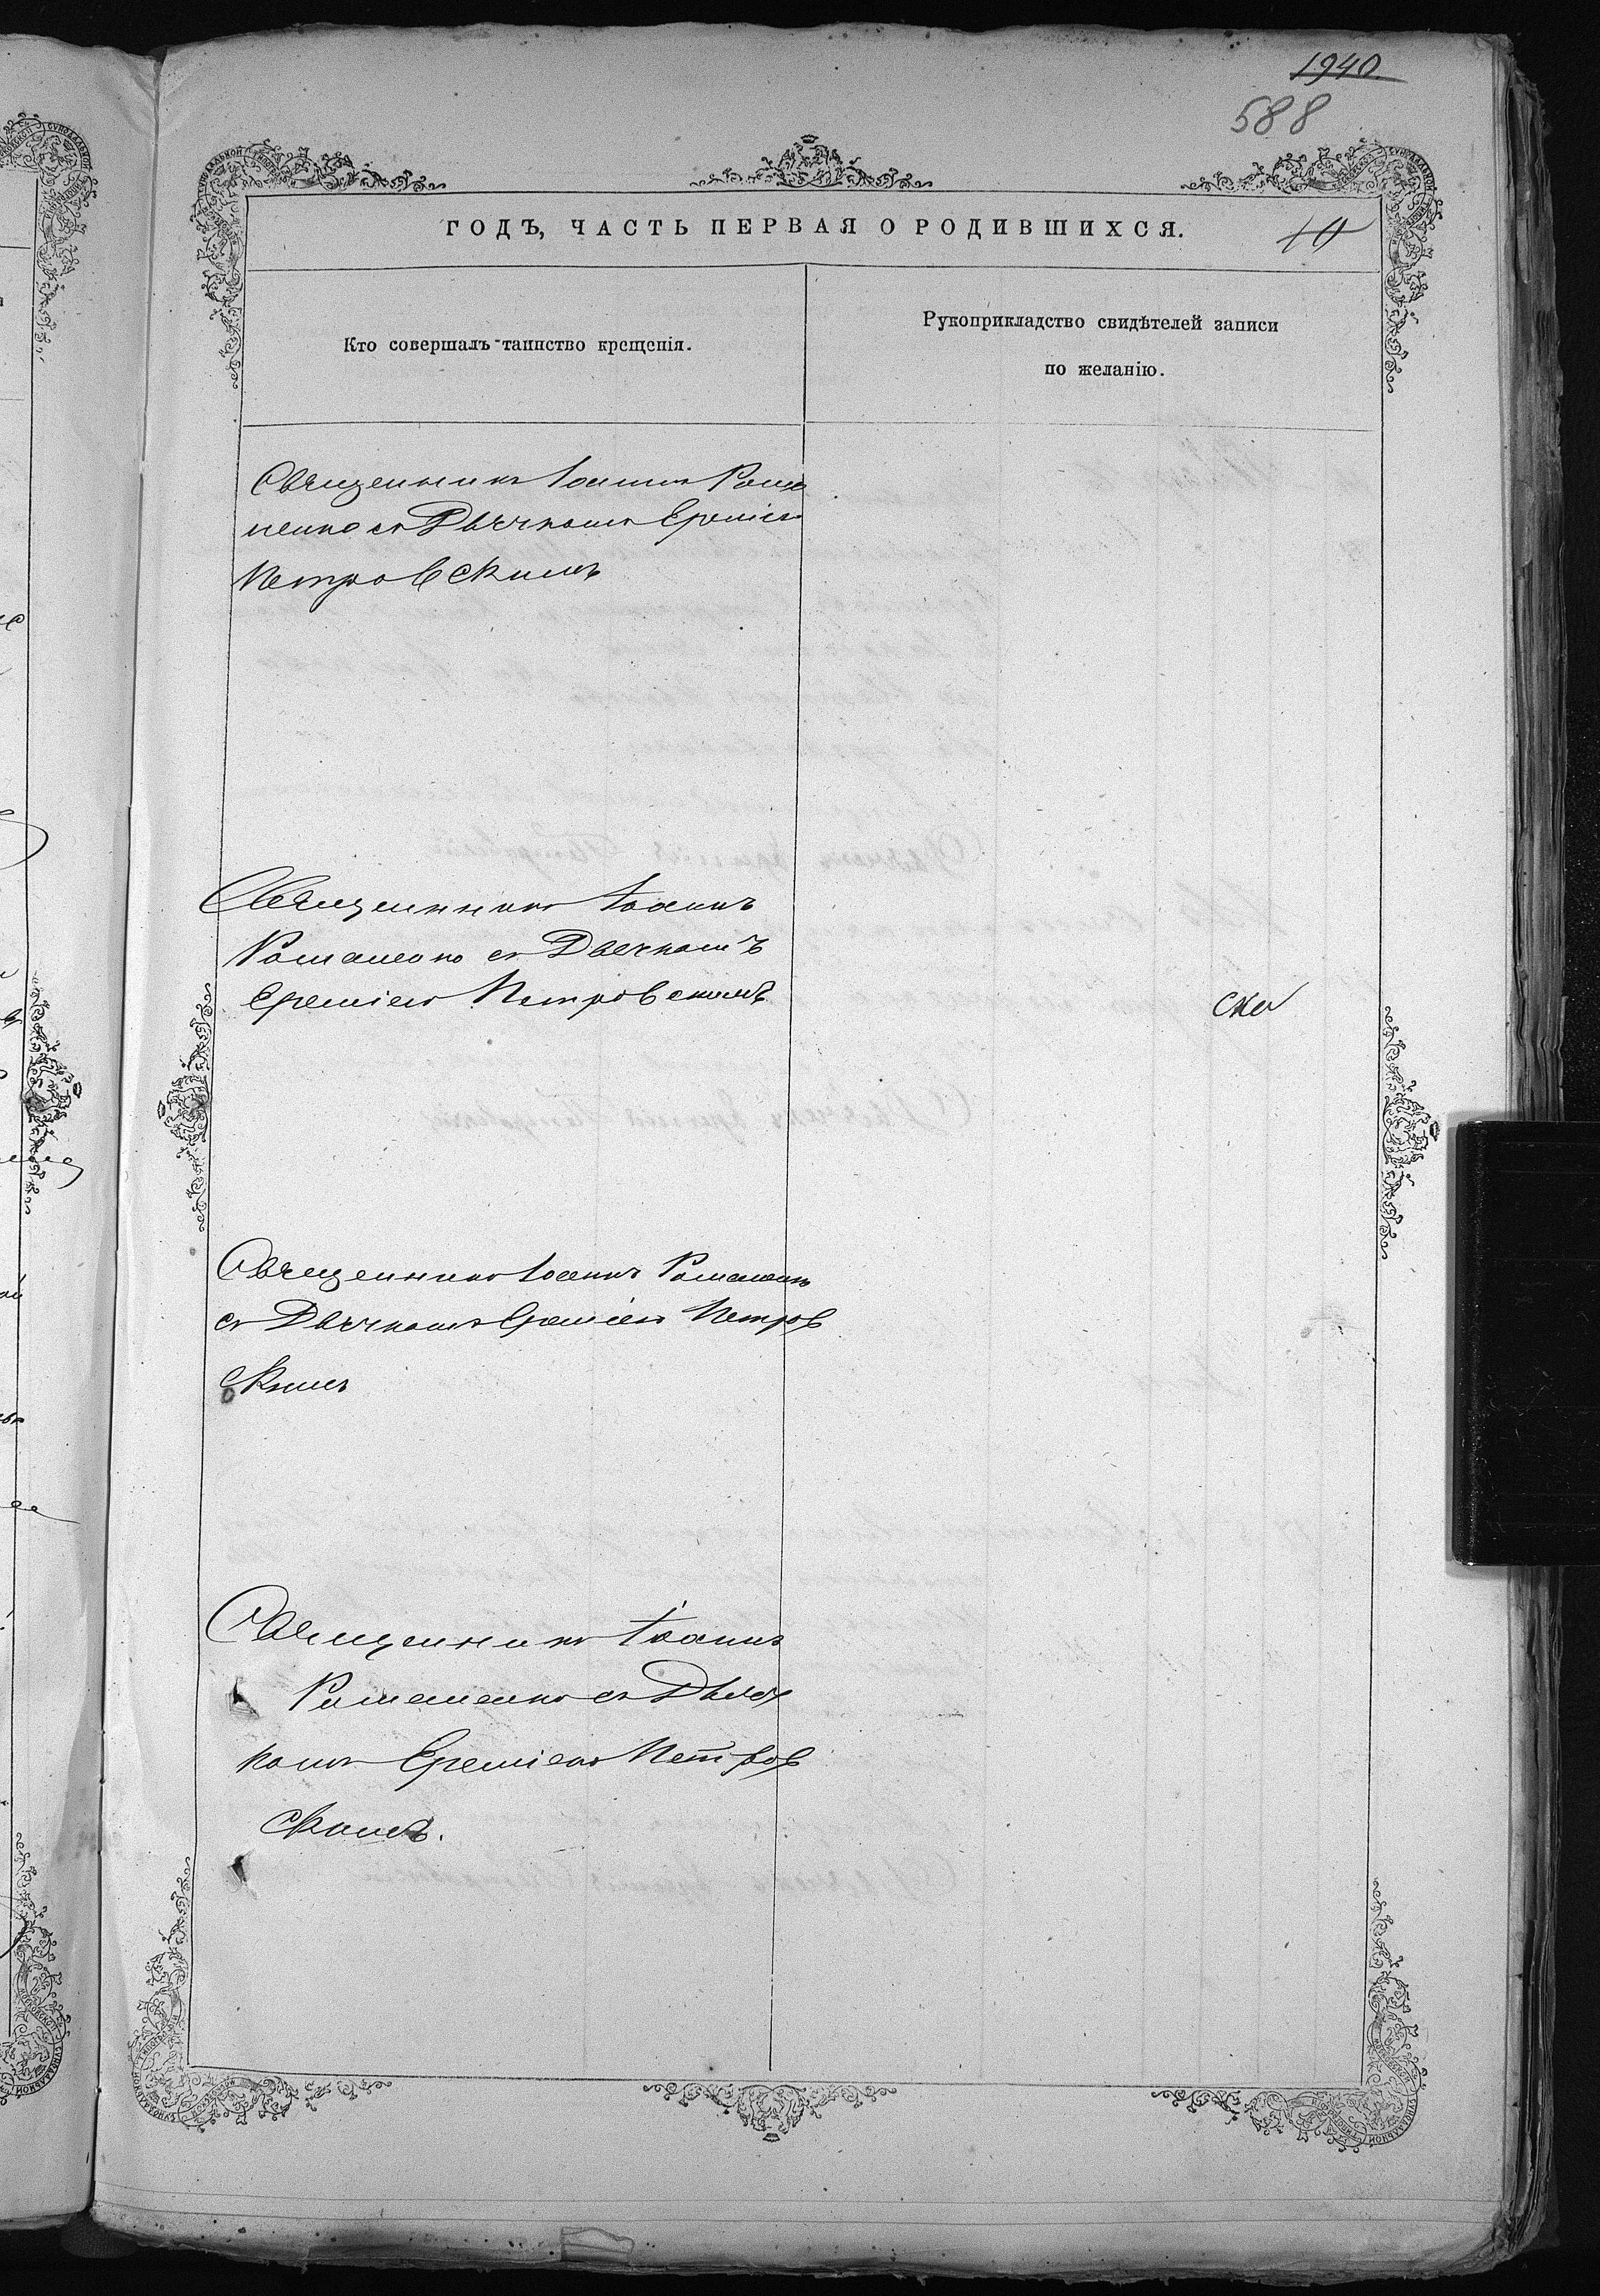 1940
588
ГОДЪ, ЧАСТЬ ПЕРВАЯ О РОДИВШИХСЯ.
10
Кто совершалъ таинство крещенія.
Рукоприкладство свидѣтелей записи
по желанію.
Священникъ Іоаннъ Рома
ненко съ Дьячкомъ Ереміею
Петровскимъ
Священникъ Іоаннъ
Романенко съ Дьячкомъ
Ереміею Петровскимъ
Священникъ Іоаннъ Романенко
съ Дьячкомъ Ереміею Петров
скимъ
Священникъ Іоаннъ
Романенко съ Дьяч
комъ Ереміею Петров
скимъ.